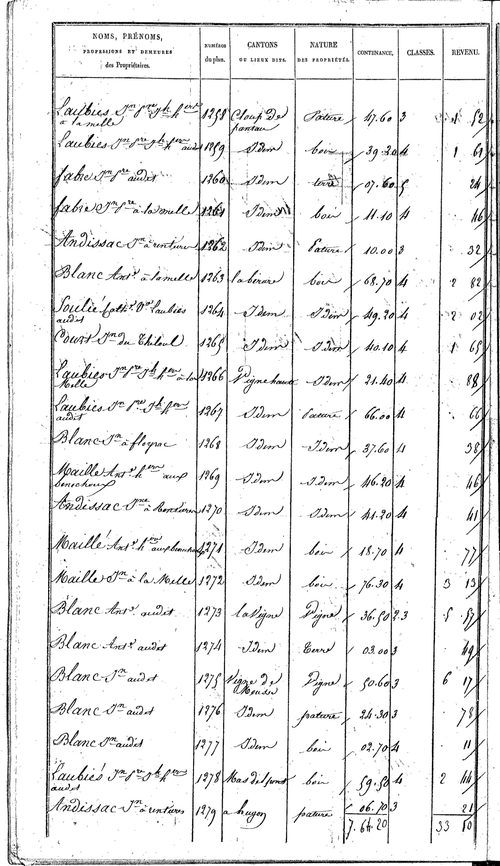 NOMS, PRÉNOMS, PROFESSIONS ET DEMEURES des Propriétaires. NUMÉROS du plan. CANTONS OU LIEUX DITS. NATURE DES PROPRIÉTÉS. CONTENANCE. CLASSES. REVENU.
Laubies Jn Pre Jh 1258 Cloup de Pature 47.60 3 1 52
à lamelle
Laubies Jn Pre Jh audit 1259 Idem bois 39.20 4 1 61
fabre Jn Pre audit 1260 Idem terre 07.60 5 24
fabre Jn Pre à la melle 1261 Idem bois 11.10 4 46
Andissac Jn à 1262 Idem Pature 10.00 3 32
Blanc Ant. à lamelle 1263 bois 68.70 4 2 82
Soulié Cath. Laubies 1264 Idem Idem 49.20 4 2 02
audit
Court Jn du 1265 Idem Idem 40.10 4 1 65
Laubies Jn Pre Jh à la 1266 Vigne haute Idem 21.40 4 88
Melle
Laubies Jn Pre Jh 1267 Idem Pature 66.00 4 66
audit
Blanc Jn à fleyrac 1268 Idem Idem 37.60 4 38
Maille Ant. aux 1269 Idem Idem 46.20 4 46
Andissac Jn à 1270 Idem Idem 41.20 4 41
Maillé Ant. 1271 Idem bois 18.70 4 77
Maille Jn à la Melle 1272 Idem bois 76.30 4 3 13
Blanc Ant. audit 1273 la Vigne Vigne 36.50 2.3 5 57
Blanc Ant. audit 1274 Idem Terre 03.00 3 49
Blanc Jn audit 1275 Vigne de Vigne 50.60 3 6 17
Blanc Jn audit 1276 Idem pature 24.30 3 78
Blanc Jn audit 1277 Idem bois 02.70 4 11
Laubiés Jn Pre Jh 1278 Mas del bois 59.50 4 2 44
audit
Andissac Jn à 1279 a hugon pature 06.70 3 21
7.64.20 33 10